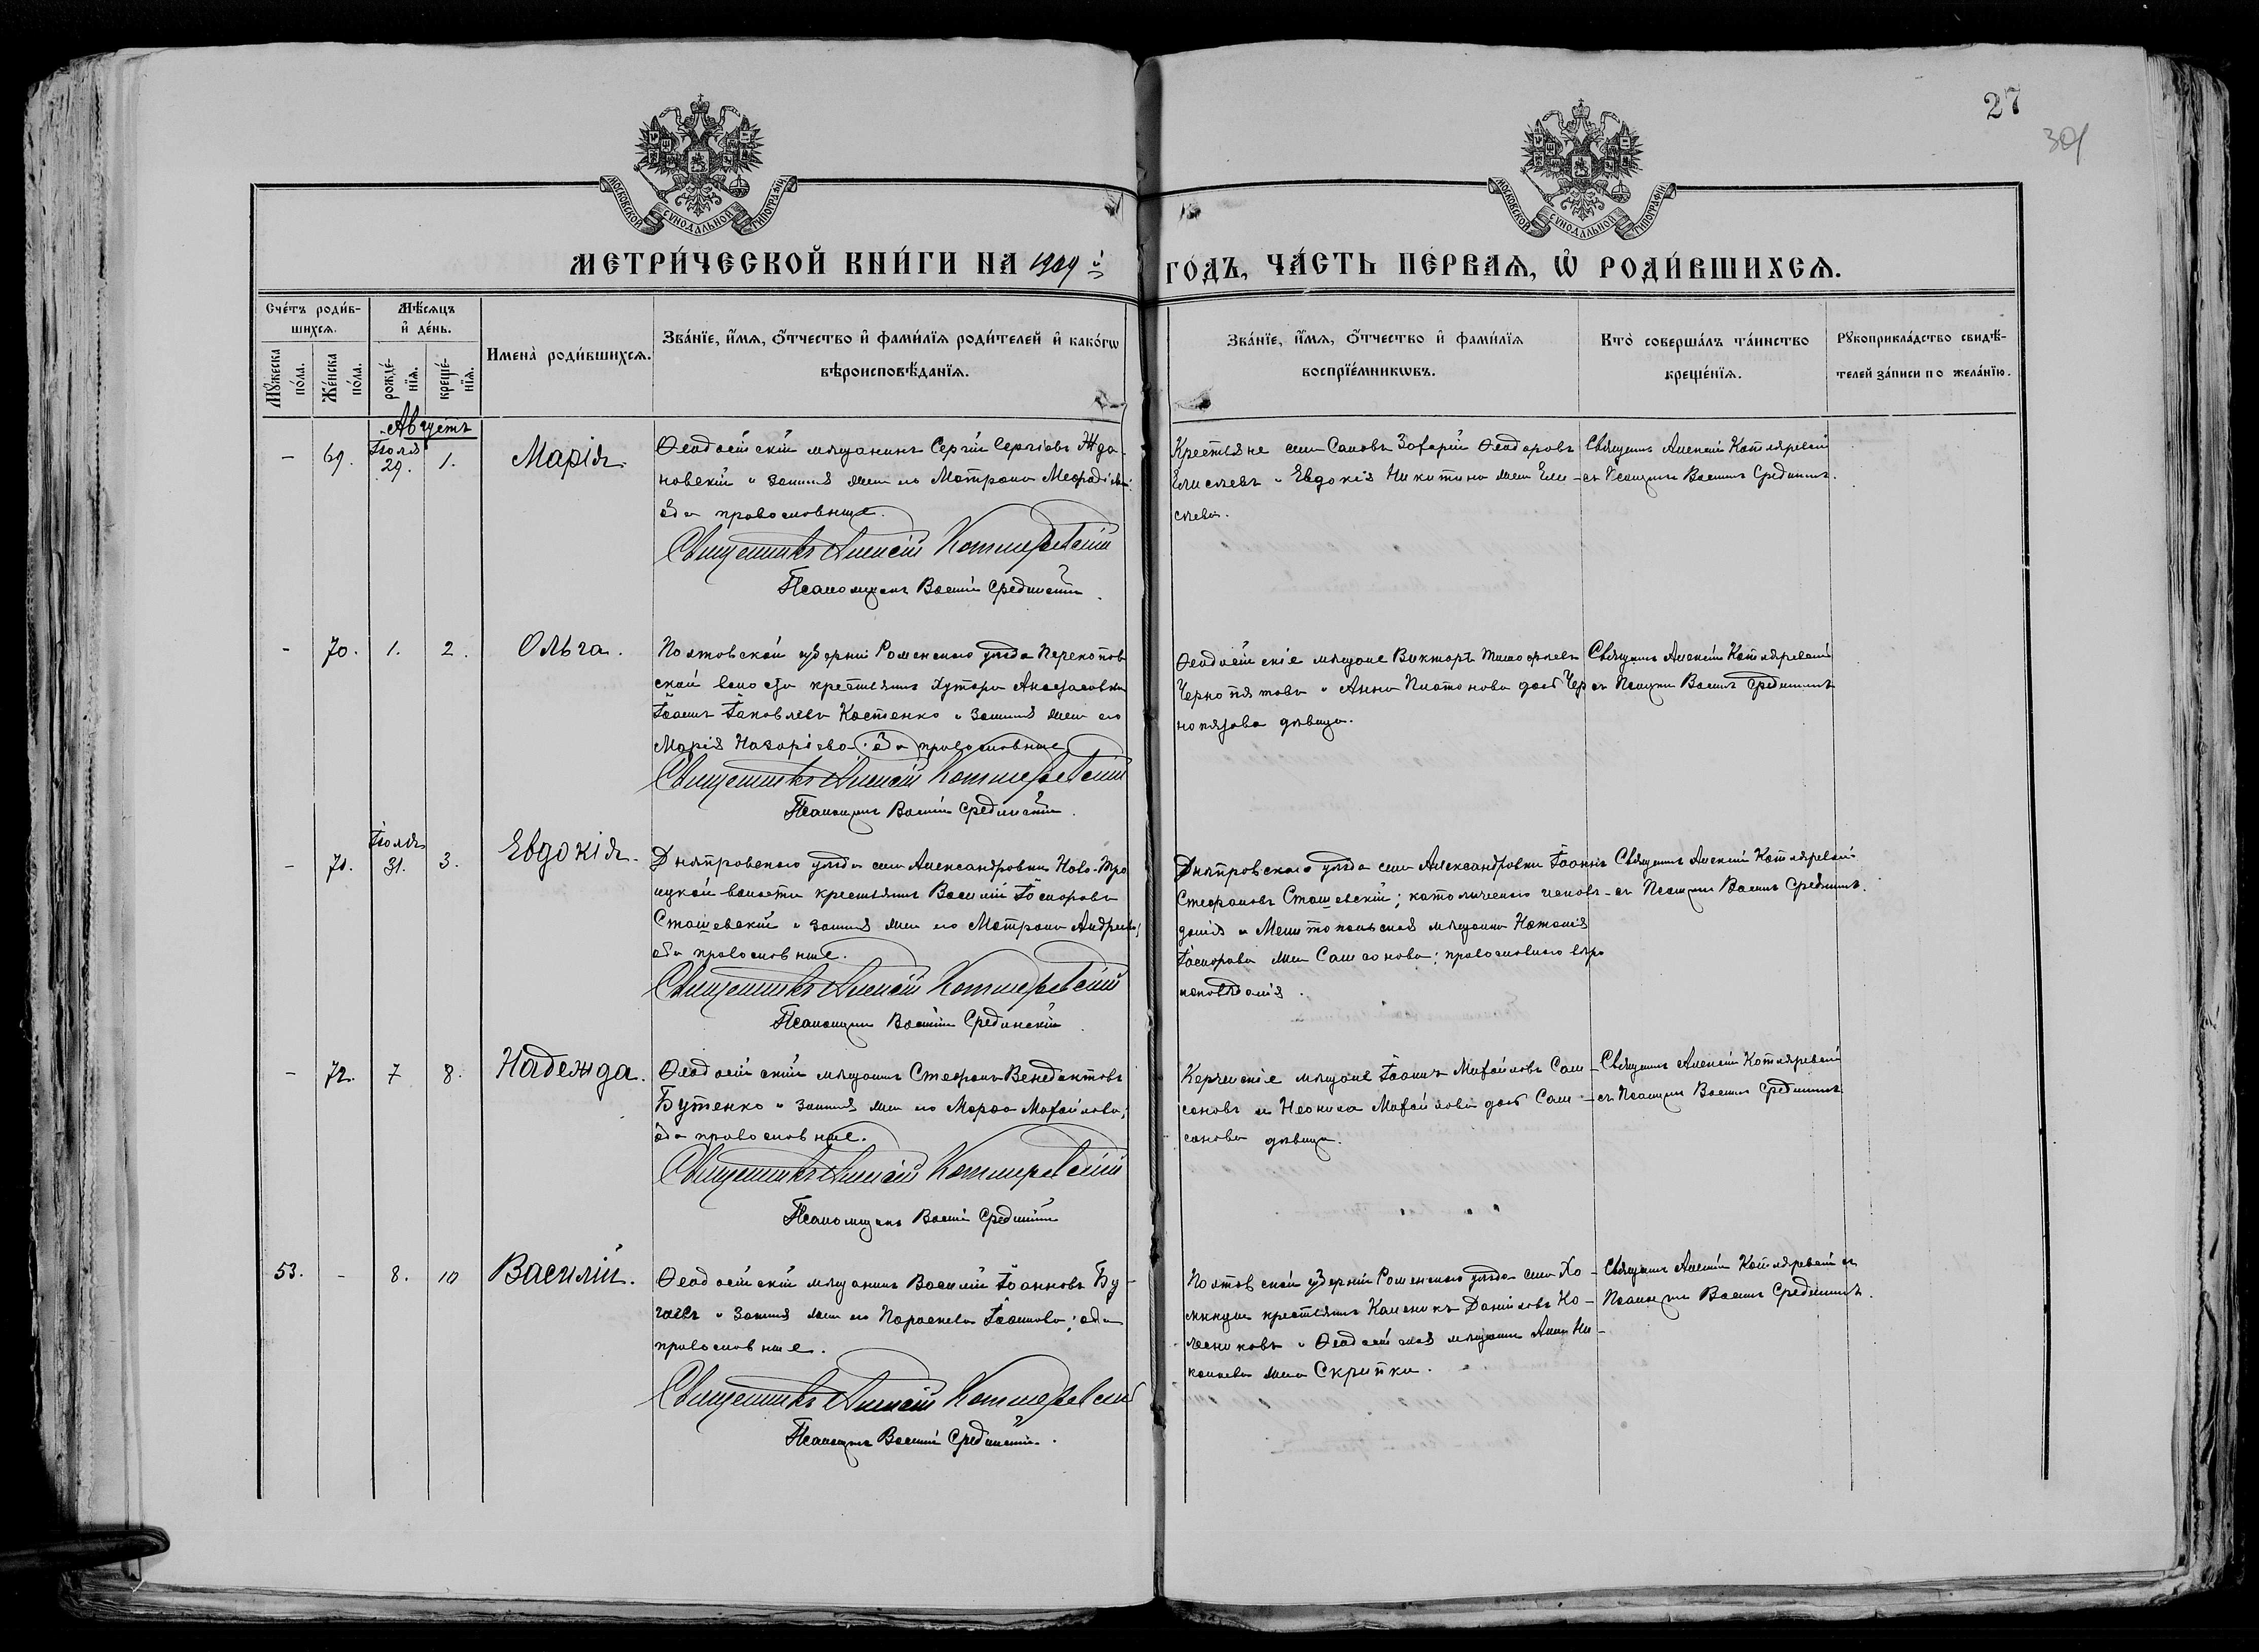 27
301
МОСКОВСКОЙ СѴНОДАЛЬНОЙ ТИПОГРАФІИ
МОСКОВСКОЙ СѴНОДАЛЬНОЙ ТИПОГРАФІИ
МЕТРИ́ЧЕСКОЙ КНИ́ГИ НА 1909 й ГО́ДЪ, ЧА́СТЬ ПЕ́РВАѦ, Ѡ҆ РОДИ́ВШИХСѦ.
Сче́тъ роди́в-
шихсѧ.
Мѣ́сѧцъ
и҆ де́нь.
Мꙋ́жеска
по́ла.
Же́нска
по́ла.
рожде́-
нїѧ.
креще́-
нїѧ.
Имена̀ роди́вшихсѧ.
Зва́нїе, и҆́мѧ, ѻ҆́тчество и҆ фами́лїѧ роди́телей и҆ како́гѡ
вѣроисповѣ́данїѧ.
Зва́нїе, и҆́мѧ, ѻ҆́тчество и҆ фами́лїѧ
воспрїе́мникѡвъ.
Кто̀ соверша́лъ та́инство
креще́нїѧ.
Рꙋкоприкла́дство свидѣ́-
телей за́писи по жела́нїю.
Августъ
- 69. Іюля 29. 1. Марія.
Ѳеодосійскій мѣщанинъ Сергій Сергіевъ Жда-
новскій и законная жена его Матрона Меѳодіева:
оба православные.
Священникъ Алексій Котляревскій
Псаломщикъ Василій Срединскій
Крестьяне Захарій Ѳеодоровъ
Елисѣевъ и Евдокія Никитина жена Ели-
сѣева.
Священ. Алексій Котляревскій
съ Псаломщ. Васил. Срединск.
- 70. 1. 2. Ольга.
Полтавской губерніи Роменскаго уѣзда Перекопов
ской волости крестьянинъ хутора
Іоаннъ Іаковлевъ Костенко и законная жена его
Марія Назаріева: оба православные
Священникъ Алексій Котляревскій
Псаломщикъ Василій Срединскій.
Ѳеодосійскіе мѣщане Викторъ Тимоѳеевъ
и Анна Платонова дочь Чер
дѣвица.
Священ. Алексій Котляревскій
съ Псаломщ. Васил. Срединск.
- 71. Іюля 31. 3. Евдокія.
Днѣпровскаго уѣзда села Александровки Ново-Тро
ицкой волости крестьянинъ Василій
Сташевскій и законная жена его Матрона Андреева;
оба православные.
Священникъ Алексій Котляревскій
Псаломщикъ Василій Срединскій
Днѣпровскаго уѣзда села Александровки Іоаннъ
Стефановъ Сташевскій; католическаго исповѣ-
данія и Мелитопольская мѣщанка Наталія
жена Самсонова; православнаго вѣро
исповѣданія.
Священ. Алексій Котляревскій
съ Псаломщ. Васил. Срединск.
- 72. 7 8. Надежда.
Ѳеодосійскій мѣщанинъ Стефанъ Венедиктовъ
Бутенко и законная жена его Марѳа Михайлова;
оба православные.
Священникъ Алексій Котляревскій
Псаломщикъ Василій Срединскій
Керченскіе мѣщане Іоаннъ Михайловъ Сам-
соновъ и Неонила Михайлова дочь Сам-
сонова дѣвица.
Священ. Алексій Котляревскій
съ Псаломщ. Васил. Срединск.
53. - 8. 10 Василій.
Ѳеодосійскій мѣщанинъ Василій Іоанновъ Бу-
гаевъ и законная жена его Параскева Іоаннова; оба
православные.
Священникъ Алексій Котляревскій
Псаломщикъ Василій Срединскій.
Полтавской губерніи Роменскаго уѣзда села
крестьянинъ Даніиловъ Ко-
лесниковъ и Ѳеодосійская мѣщанка Анна Ни-
колаева жена Скрипка.
Священ. Алексій Котляревскій съ
Псаломщ. Васил. Срединск.